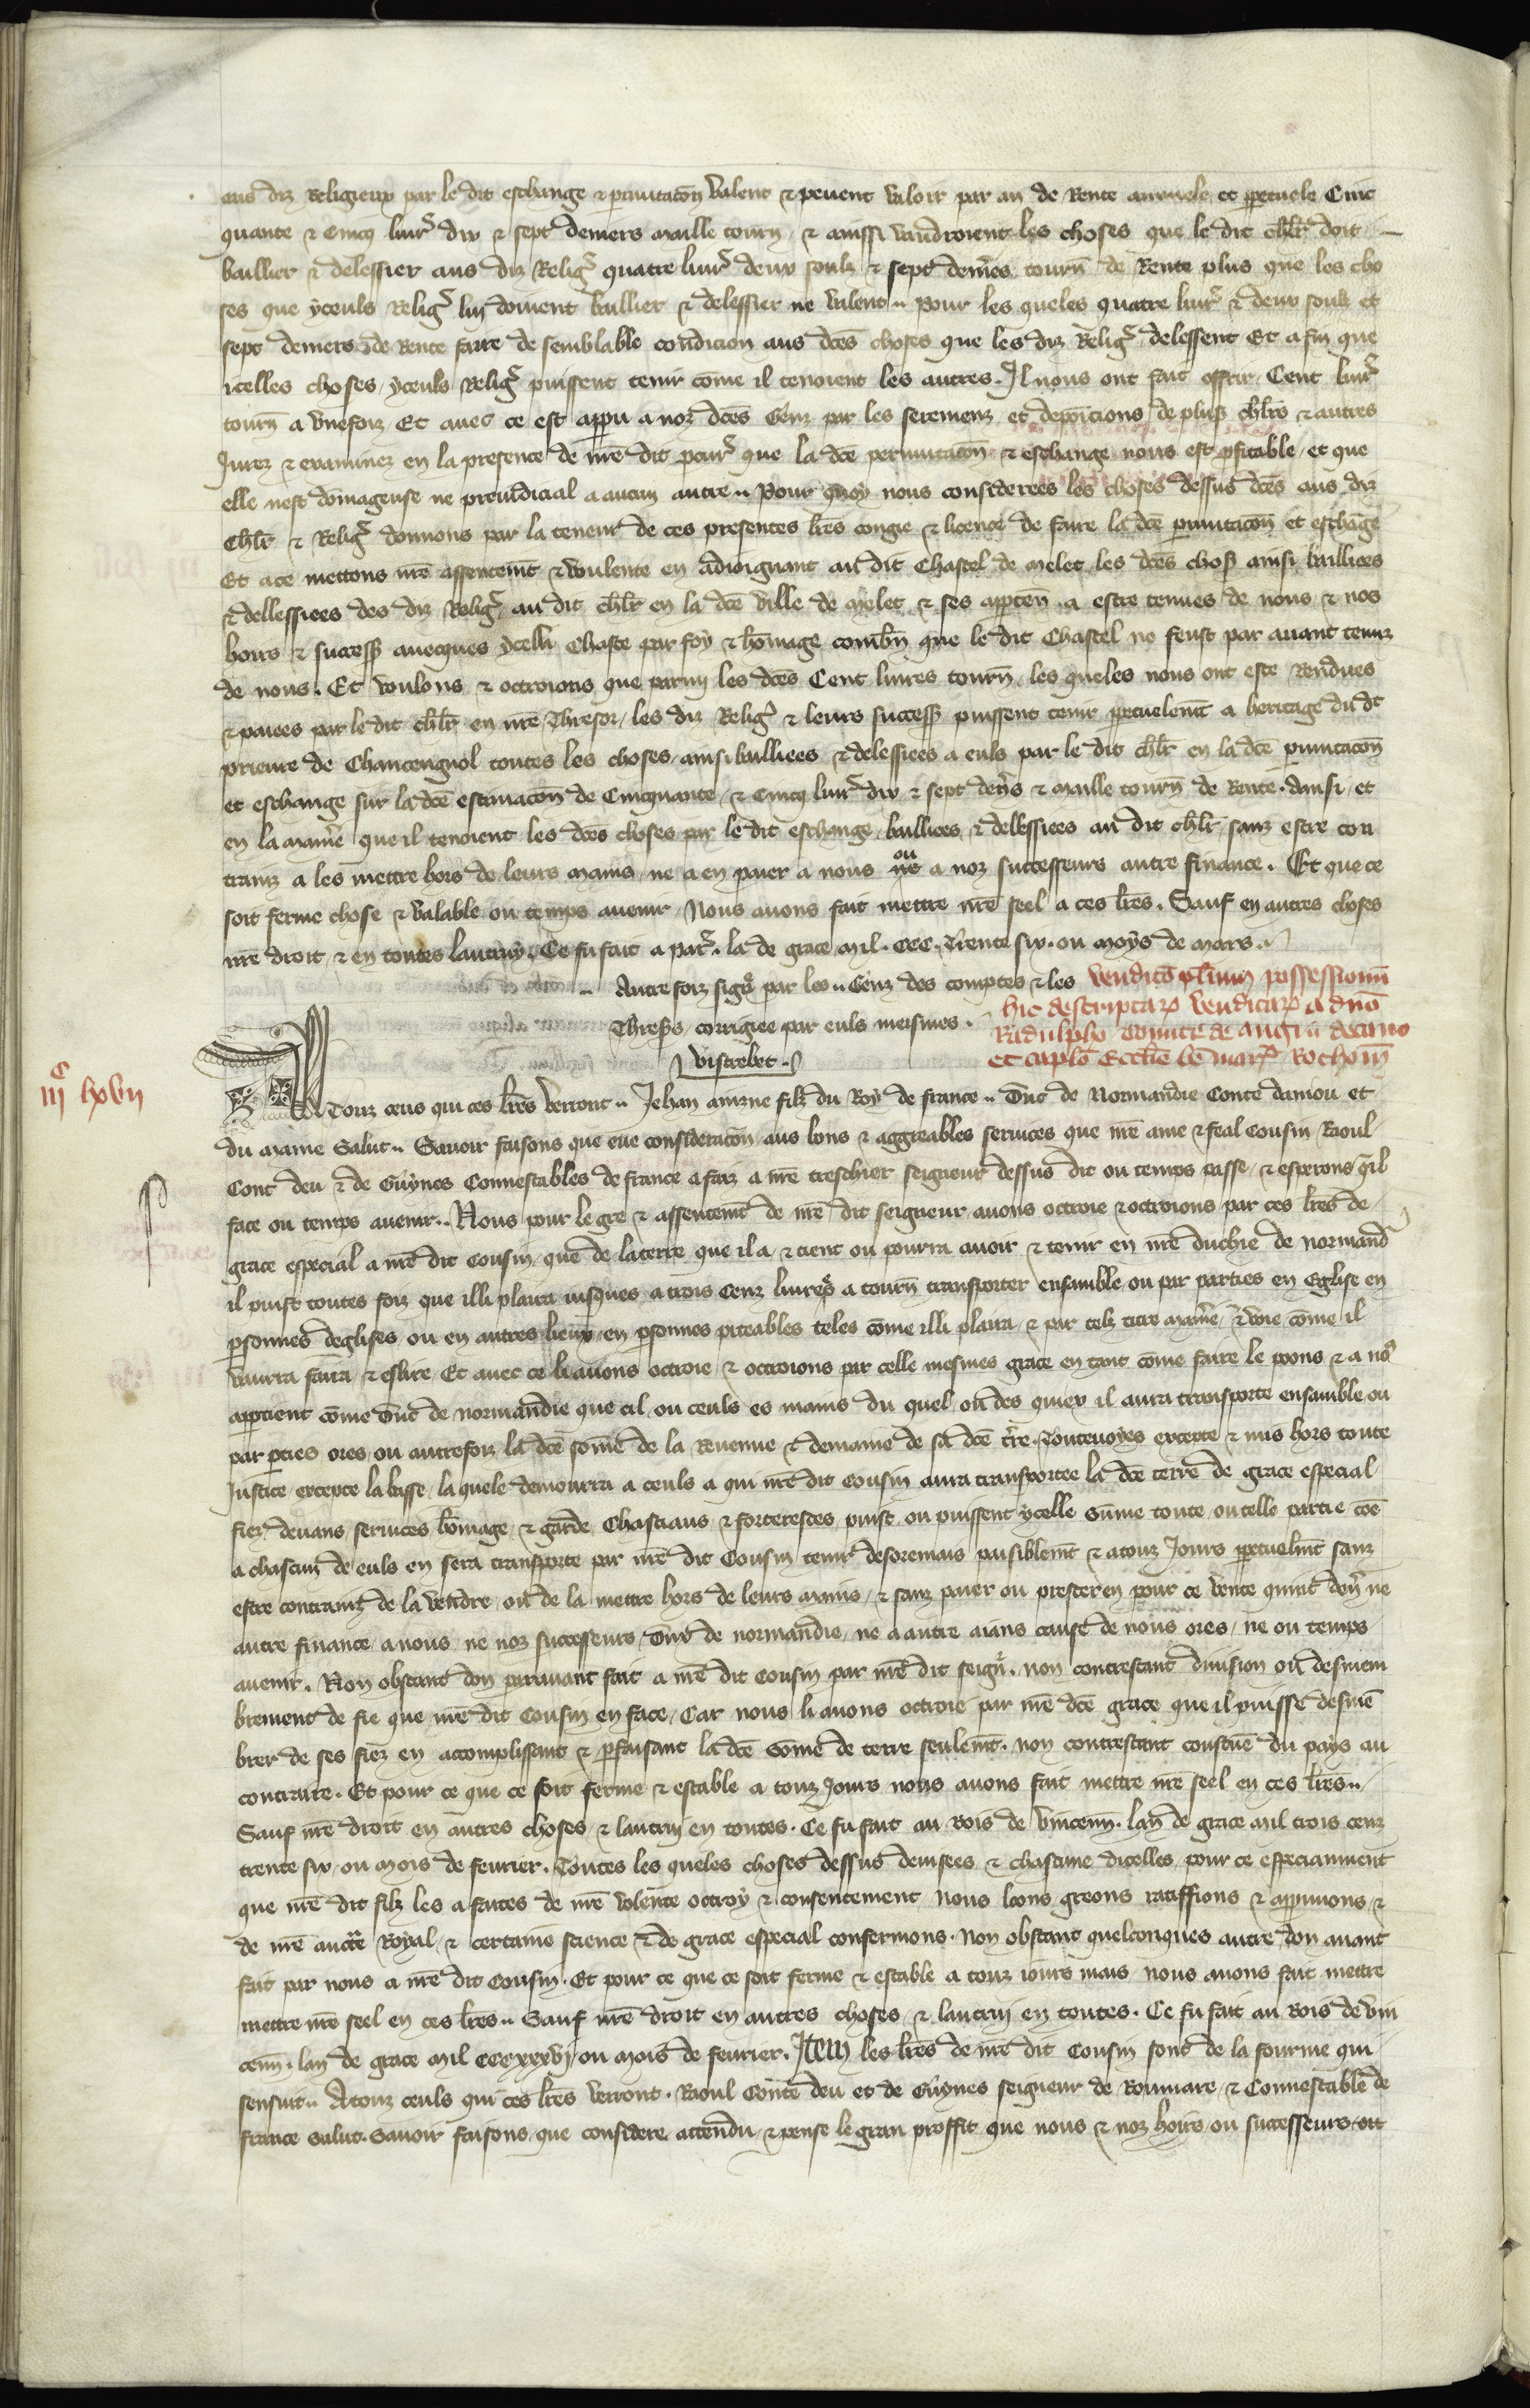 aus diz Religieux par le dit eschange & pmutacōn valent & peuent valoir par an de Rente annuele et ppetuele Cinc
quante & Cincq liur̄ dix & sept deniers maille tourn̄ & ainssi vaudroient les choses que le dit chlr̄ doit
baillier & delessier aus diz Reliḡ quatre liur̄ deux soulz & sept dem̄es tourn̄ de Rente plus que les cho
ses que yceuls Reliḡ luy doiuent baillier & delessier ne valent.. pour les queles quatre liur̄ & deux soulz et
sept deniers de Rente faire de semblable condicion aus dc̄es choses que les diz Reliḡ delessent Et a fin que
icelles choses yceuls Reliḡ puissent tenir cōme il tenoient les autres. Il nous ont fait offrir Cent liur̄
tourn̄ a vnefoiz Et auec ce est appu a noz dc̄es Genz par les seremenz et deposicions de plus̄ chlr̄s & autres
Jurez & examinez en la presence de nr̄e dit pcur̄ que la dc̄e permutacōn & eschange nous est pfitable et que
elle nest dōmageuse ne preiudicial a aucun autre.. Pour quoy nous considerees les choses dessus dc̄es aus diz
Chlr̄ & Reliḡ donnons par la teneur de ces presentes lr̄es congie & licence de faire la dc̄e pmutacōn et eschāge
Et a ce mettons nr̄e assentem̄t & voulente en adioignant au dit Chastel de Melet les dc̄es chos̄ ainsi baillices
& dellessiees des diz Reliḡ au dit chlr̄ en la dc̄e ville de melet & ses apptēn a estre tenues de nous & nos
hoirs & success̄ auecques ycelli Chaste par foy & hōmage combn̄ que le dit Chastel ne feust par auant tenuz
de nous. Et voulons & octroions que parmi les dc̄es Cent liures tourn̄ les queles nous ont este Rendues
& paiees par le dit chlr̄ en nr̄e Thresor, les diz Reliḡ & leurs success̄ puissent tenir ppetuelem̄t a heritage du dt̄
prieure de Chantenguol toutes les choses ainsi bailliees & delessiees a euls par le dit chlr̄ en la dc̄e pmutacōn
et eschange sur la dc̄e estimacōn de Cincquante & Cincq liur̄ dix & sept dēn̄s & maille tourn̄ de Rente. Ainsi et
en la manie͂ que il tenoient les dc̄es choses par le dit eschange baillices & dellessiees au dit chlr̄ sanz estre con
trainz a les mettre hors de leurs mains ne a en paier a nous ou a noz successeurs autre finance. Et que ce
soit ferme chose & valable ou temps auenir Nous auons fait mettre nr̄e seel a ces lr̄es. Sauf en autres choses
nr̄e droit & en toutes lautruy. Ce fu fait a par̄. lā de grace Mil. CCC. Trente six. ou moys de mars.
.. Autrefoiz sign̄ par les.. Genz des comptes & les
Thres̄s corrigiee par euls meismes.
Vistrebet.
Vendicō plurium possessionū
hic descriptar̄ venditar̄ a dn̄o
Radulpho comite de augi ū decano
et caplō Ecclīe bē marī Rothom̄
iijᶜ lxvii
A Touz ceus qui ces lr̄es verront.. Jehan ainzne filz du Roy de france.. Duc de Normandie Conte daniou et
du maine Salut.. Sauoir faisons que eue consideracōn aus bons & aggreables seruices que nr̄e ame & feal Cousin Raoul
Cont deu & de Guynes Connestables de france a faiz a nr̄e treschier seigneur dessus dit ou temps passe & esperons q̄il
face ou temps auenir.. Nous pour le gre & assentem̄t de nr̄e dit seigneur auons octroie & octroions par ces lr̄es de
grace especial a nr̄e dit Cousin que de la terre que il a & tient ou pourra auoir & tenir en nr̄e duchie de normand̄
il puist toutes foiz que illi plaira iusques a trois Cenz liur̄es a tourn̄ transporter ensamble ou par parties en Eglise en
psonnes deglises ou en autres lieux en psonnes piteables teles cōme illi plaira & par telz titre manie͂ & voie cōme il
vaurra faira & eslire Et auec ce li auons octroie & octroions par celle mesmes grace en tant cōme faire le poons & a nos
apptient cōme Duc de normandie que cil ou ceuls es mains du quel ou des quiex il aura transporte ensamble ou
par pties ores ou autrefoiz la dc̄e sōme de la Reuenue & demaine de sa dc̄e tr̄re. Touteuoyes excepte & mis hors toute
Justice excepte la basse, la quele demourra a ceuls a qui nr̄e dit Cousin aura transportee la dc̄e terre de grace especial
fiez deuans seruices hōmage & garde Chastiaus & forteresces puist ou puissent ycelle Sūme toute ou telle partie cōe
a chascun de euls en sera transporte par nr̄e dit Cousin tenir desoremais paisiblem̄t & a touz Jours ppetuelm̄t sanz
estre contrainz de la vendre ou de la mettre hors de leurs mains & sanz paier ou presteren pour ce vente quint den̄ ne
autre finance a nous ne noz successeurs Duc de normandie ne a autre aians cause de nous ores ne ou temps
auenir. Non obstant don parauant fait a nr̄e dit Cousin par nr̄e dit seign̄. non contrestant diuision ou desmem
brement de fie que nr̄e dit Cousin en face, Car nous li auons octroie par nr̄e dc̄e grace que il puisse desmē
brer de ses fiez en accomplissant & pfaisant la dc̄e sōme de terre seulem̄t. non contrestant coustume du pays au
contraire. Et pour ce que ce soit ferme & estable a touz Jours nous auons fait mettre nr̄e seel en ces lr̄es..
Sauf nr̄e droit en autres choses & lautrui en toutes. Ce fu fait au Bois de vincenn̄. lan de grace mil trois cenz
trente six ou mois de feurier. Toutes les queles choses dessus deuisees & chascune dicelles pour ce especiaument
que nr̄e dit filz les a faites de nr̄e volente octroy & consentement nous loons greons ratiffions & appuuons &
de nr̄e auct̄e Royal & certaine science & de grace especial confermons. Non obstant quelconques autre don auant
fait par nous a nr̄e dit Cousin. Et pour ce que ce soit ferme & estable a touz iours mais nous auons fait mettre
mettre nr̄e seel en ces lr̄es.. Sauf nr̄e droit en autres choses & lautrui en toutes. Ce fu fait au Bois de vin
cenn̄. lan de grace mil CCCxxxvj ou mois de feurier. Item les lr̄es de nr̄e dit Cousin sont de la fourme qui
sensuit.. A touz ceuls qui ces lr̄es verront. Raoul Conte deu et de Guynes seigneur de Roumare & Connestable de
france salut. Sauoir faisons que considere attendu & pense le gran proffit que nous & noz hoirs ou successeurs ont